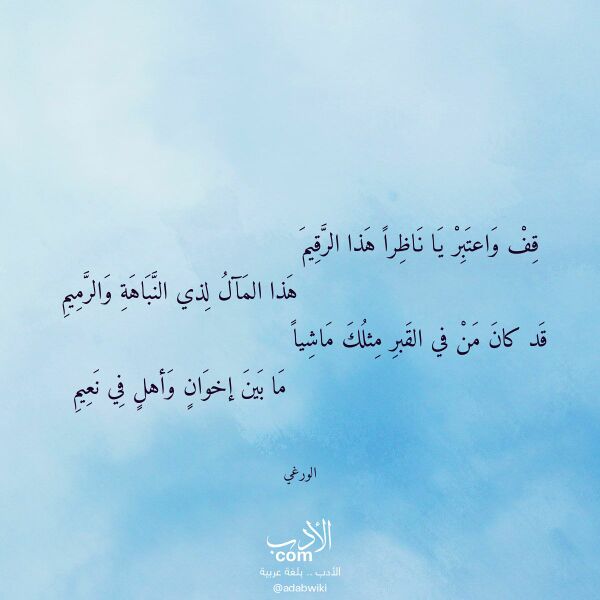 قِفْ وَاعتَبِرْ يَا نَاظِراً هَذا الرَّقِيمَ
هَذا المَآلُ لِذي النَّبَاهَةِ وَالرَّمِيمِ
قَد كانَ مَنْ في القَبرِ مِثلُكَ مَاشِياً
مَا بَينَ إخوَانٍ وَأهلٍ فِي نَعِيمِ
الورغي
الأدب
com
الأدب .. بلغة عربية
@adabwiki